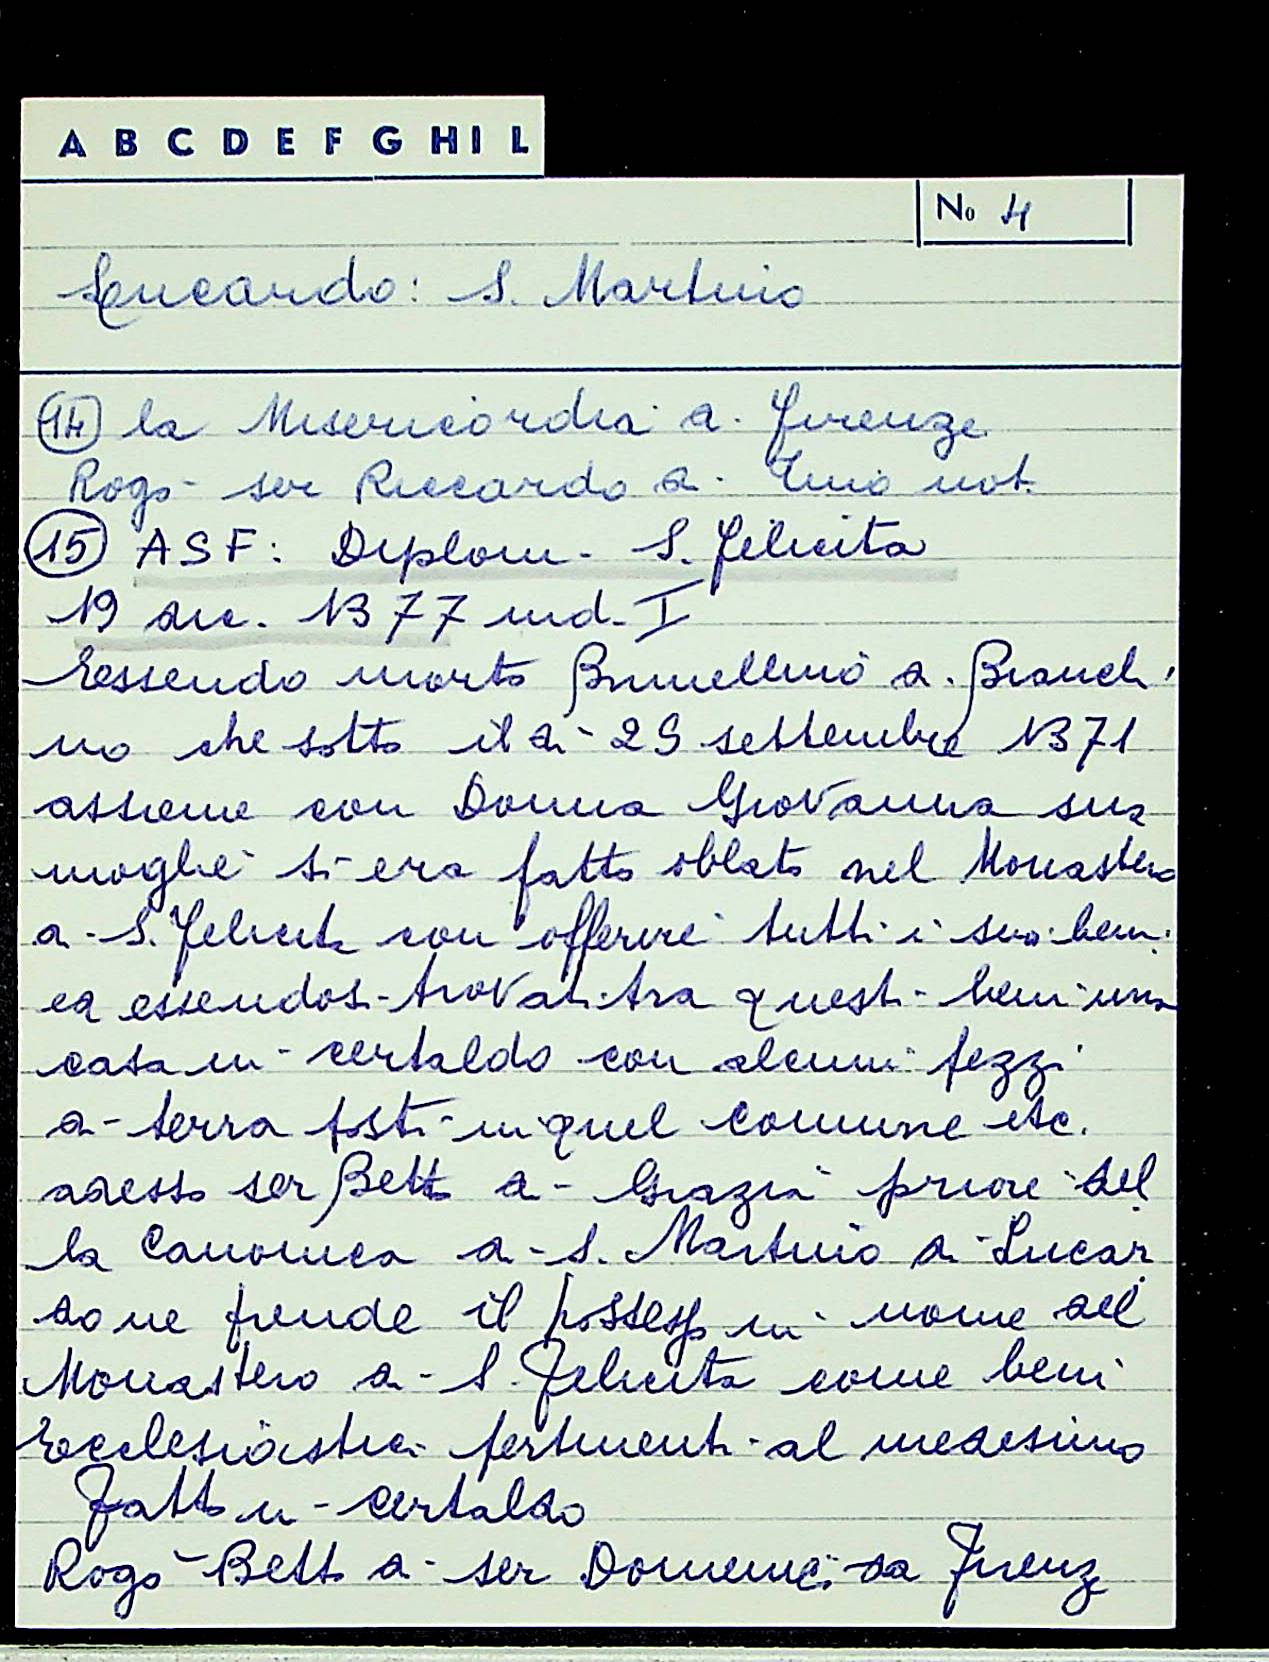 A B C D E F G H I L
No 4
Lucardo: S. Martino
14 la Misericordia di Firenze
Rogò ser Riccardo di not.
15 ASF: Diplom. S. Felicita
19 dic. 1377 ind. I
Essendo morto Brunellino di Bianchi
no che sotto il dì 29 settembre 1371
assieme con Donna Giovanna sua
moglie si era fatto oblato nel Monastero
di S. Felicita con offerire tutti i suoi beni
ed essendosi trovati tra questi beni una
casa in certaldo con alcuni pezzi
di terra posti in quel comune etc.
adesso ser Betto di Grazia priore del
la Canonica di S. Martino a Lucar
do ne prende il possesso in nome del
Monastero di S. Felicita come beni
Ecclesiastici pertinenti al medesimo
Fatto in certaldo
Rogò Betto di ser Domenico da Firenze